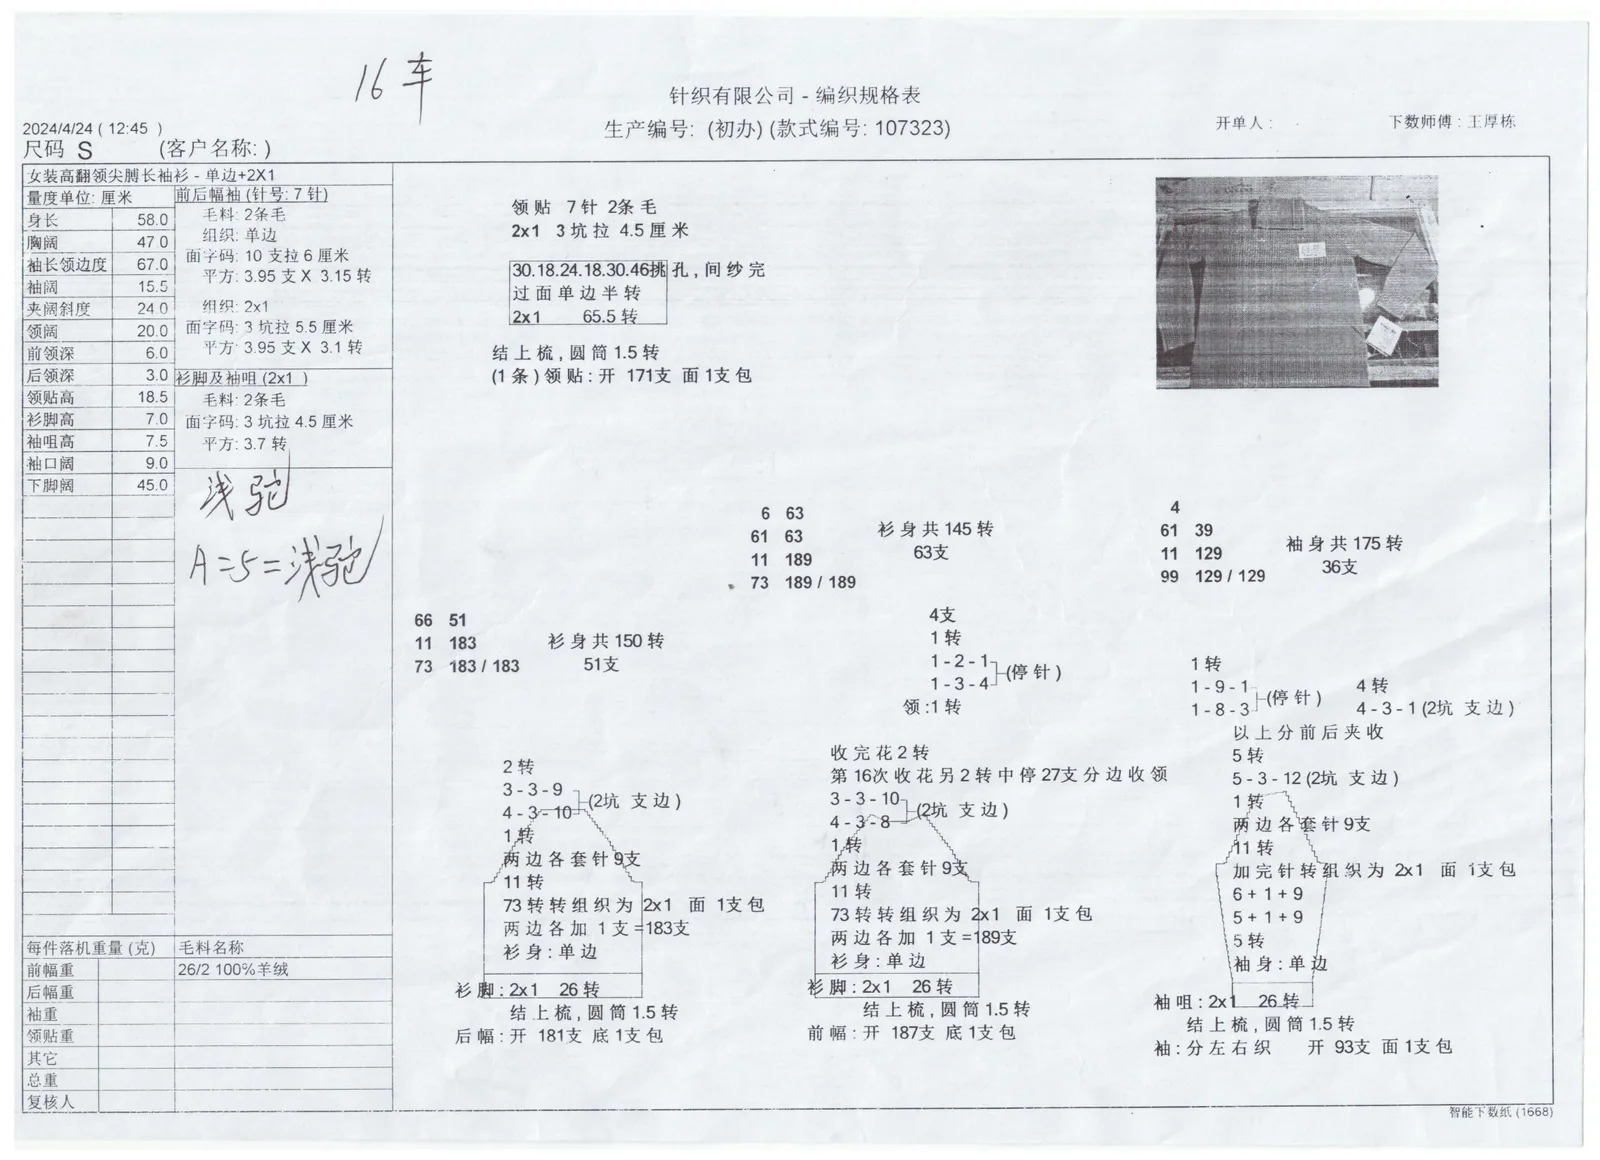 16 车
针织有限公司 - 编织规格表
生产编号: (初办) (款式编号: 107323)
开单人:
下数师傅: 王厚栋
2024/4/24 ( 12:45 )
尺码 S (客户名称: )
女装高翻领尖膊长袖衫 - 单边+2X1
量度单位: 厘米
身长 58.0
胸阔 47.0
袖长领边度 67.0
袖阔 15.5
夹阔斜度 24.0
领阔 20.0
前领深 6.0
后领深 3.0
领贴高 18.5
衫脚高 7.0
袖咀高 7.5
袖口阔 9.0
下脚阔 45.0
前后幅袖 (针号: 7 针)
毛料: 2条毛
组织: 单边
面字码: 10 支拉 6 厘米
平方: 3.95 支 X 3.15 转
组织: 2x1
面字码: 3 坑拉 5.5 厘米
平方: 3.95 支 X 3.1 转
衫脚及袖咀 (2x1 )
毛料: 2条毛
面字码: 3 坑拉 4.5 厘米
平方: 3.7 转
浅驼
A=5=浅驼
每件落机重量 (克) 毛料名称
前幅重 26/2 100%羊绒
后幅重
袖重
领贴重
其它
总重
复核人
领贴 7针 2条毛
2x1 3坑拉 4.5厘米
30.18.24.18.30.46挑孔,间纱完
过面单边半转
2x1 65.5转
结上梳,圆筒1.5转
(1条)领贴:开 171支 面1支包
66 51
11 183
73 183 / 183
衫身共150转
51支
2转
3-3-9
4-3-10
(2坑 支边)
1转
两边各套针9支
11转
73转转组织为 2x1 面 1支包
两边各加 1支=183支
衫身:单边
衫脚:2x1 26转
结上梳,圆筒1.5转
后幅:开 181支 底1支包
6 63
61 63
11 189
73 189 / 189
衫身共145转
63支
4支
1转
1-2-1
1-3-4
(停针)
领:1转
收完花2转
第16次收花另2转中停27支分边收领
3-3-10
4-3-8
(2坑 支边)
1转
两边各套针9支
11转
73转转组织为 2x1 面 1支包
两边各加 1支=189支
衫身:单边
衫脚:2x1 26转
结上梳,圆筒1.5转
前幅:开 187支 底1支包
4
61 39
11 129
99 129 / 129
袖身共175转
36支
1转
1-9-1
1-8-3
(停针)
4转
4-3-1(2坑 支边)
以上分前后夹收
5转
5-3-12(2坑 支边)
1转
两边各套针9支
11转
加完针转组织为 2x1 面 1支包
6+1+9
5+1+9
5转
袖身:单边
袖咀:2x1 26转
结上梳,圆筒1.5转
袖:分左右织 开 93支 面1支包
智能下数纸 (1668)